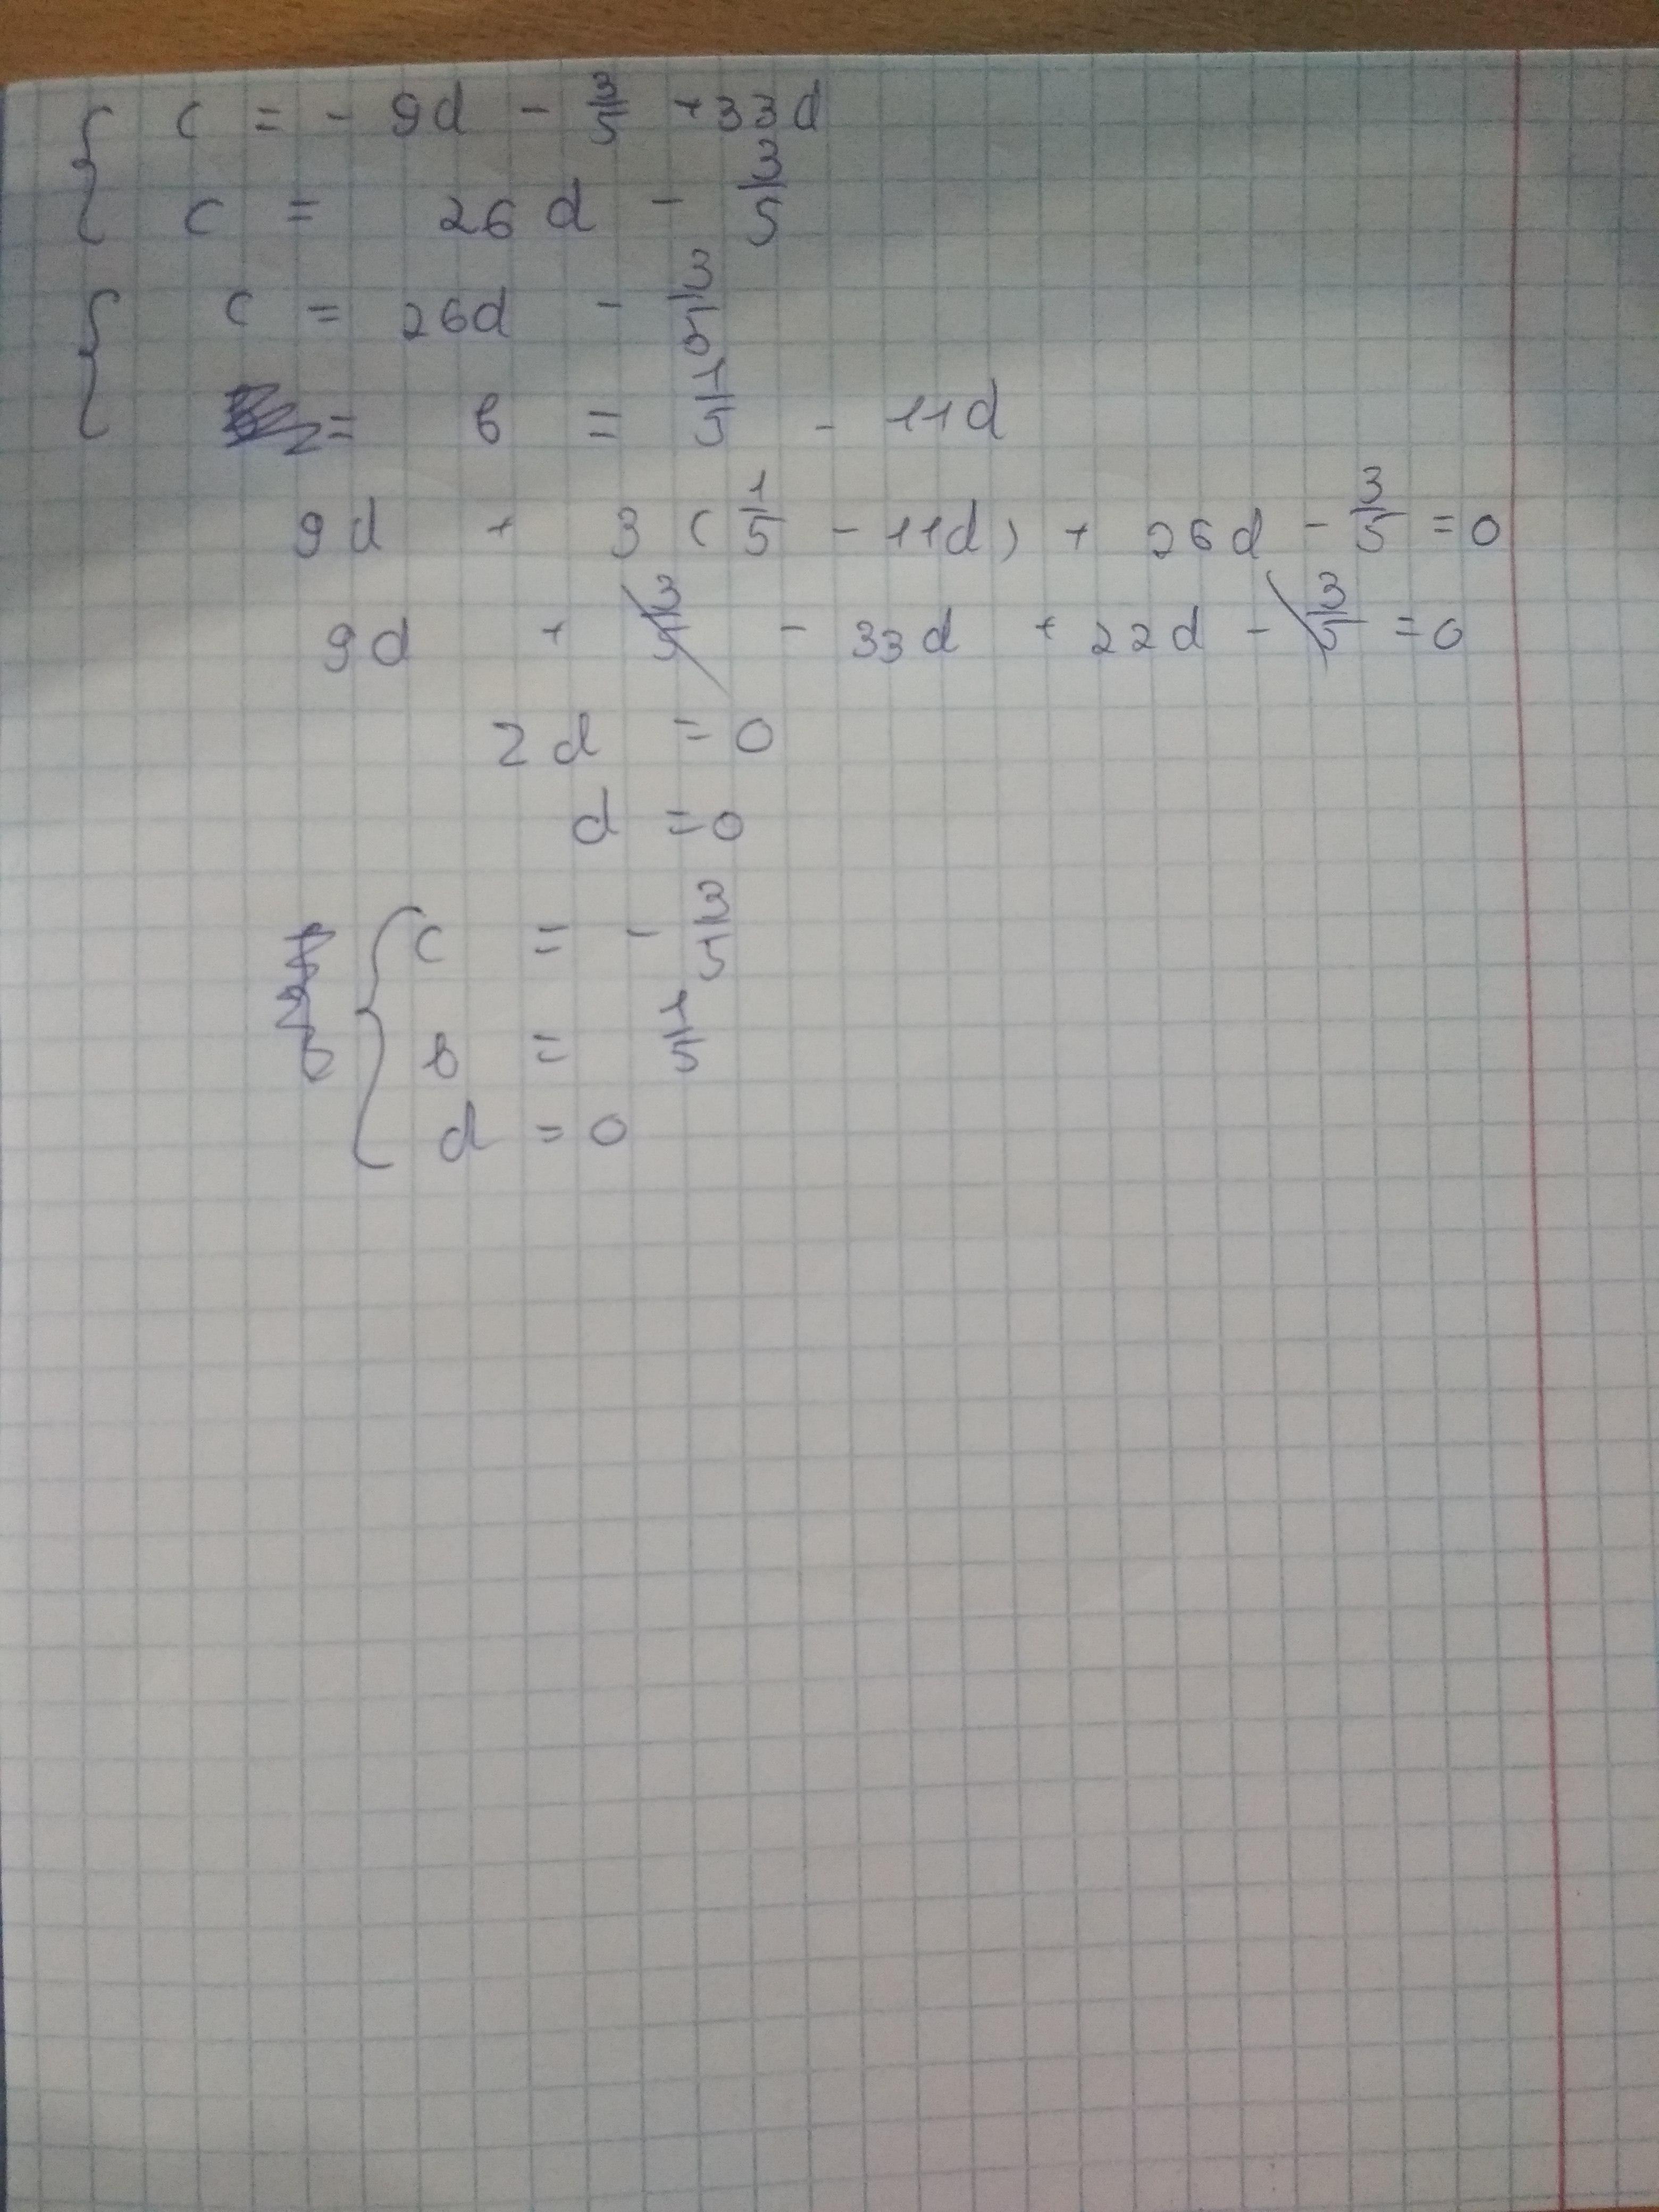 c = - 9d - 3/5 + 33d
c = 26d - 3/5
c = 26d - 3/5
= в = 1/5 - 11d
9d + 3 ( 1/5 - 11d ) + 26d - 3/5 = 0
9d + 3/5 - 33d + 22d - 3/5 = 0
2d = 0
d = 0
c = - 3/5
в = 1/5
d = 0